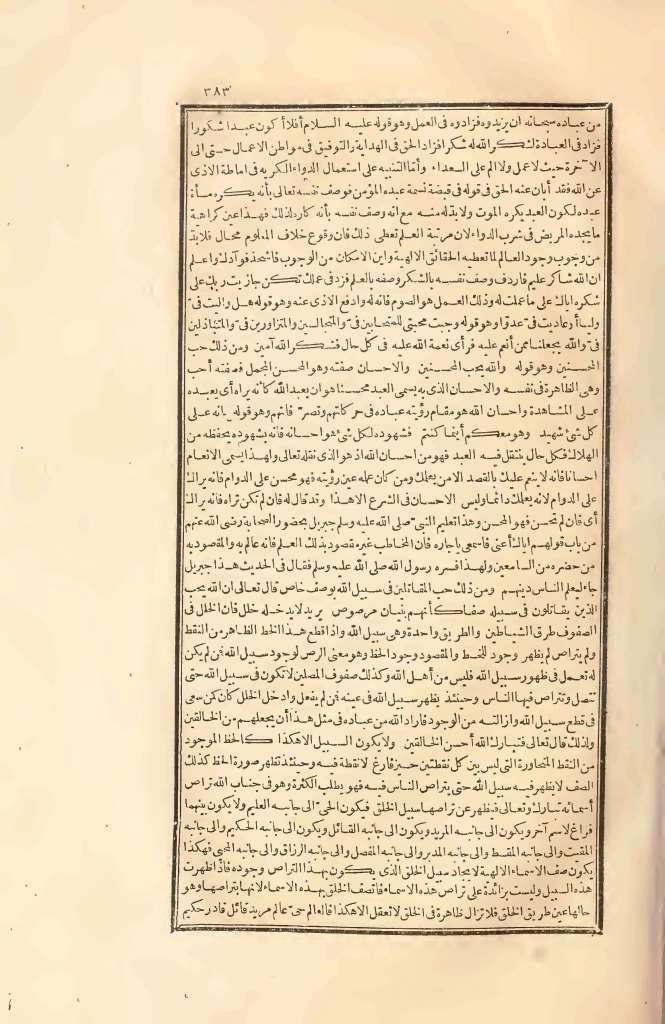 ٣٨٣
من عباده سبحانه ان يزيدوه فزادوه فى العمل وهو قوله عليه السلام أفلا أكون عبدا شكورا
فزاد فى العبادة لشكر الله له شكرا فزاد الحق فى الهداية والتوفيق فى مواطن الاعمال حتى الى
الآخرة حيث لا عمل ولا ألم على السعداء وأما التنبيه على استعمال الدواء الكريه فى اماطة الاذى
عن الله فقد أبان عنه الحق فى قوله فى قبضة نسمة عبده المؤمن فوصف نفسه تعالى بأنه يكره مساءة
عبده لكون العبد يكره الموت ولا بد له منه مع انه وصف نفسه بأنه كاره لذلك فهذا عين كراهة
ما يجده المريض فى شرب الدواء لان مرتبة العلم تعطى ذلك فان وقوع خلاف المعلوم محال فلا بد
من وجوب وجود العالم لما تعطيه الحقائق الالهية واين الامكان من الوجوب فاشحذ فؤادك واعلم
ان الله شاكر عليم فاردف وصف نفسه بالشكر وصفه بالعلم فزد فى عملك تكن جازيت ربك على
شكره اياك على ما عملت له وذلك العمل هو الصوم فانه له وادفع الاذى عنه وهو قوله هل واليت فىّ
وليا أو عاديت فىّ عدوّا وهو قوله وجبت محبتى للمتحابين فىّ والمتجالسين والمتزاورين فىّ والمتباذلين
فىّ والله يجعلنا ممن أنعم عليه فرأى نعمة الله عليه فى كل حال فشكر الله آمين ومن ذلك حب
المحسنين وهو قوله والله يحب المحسنين والاحسان صفته وهو المحسن المجمل فصفته أحب
وهى الظاهرة فى نفسه والاحسان الذى به يسمى العبد محسنا هو ان يعبد الله كأنه يراه أى يعبده
على المشاهدة واحسان الله هو مقام رؤيته عباده فى حركاتهم وتصرّفاتهم وهو قوله بانه على
كل شئ شهيد وهو معكم أينما كنتم فشهوده لكل شئ هو احسانه فانه بشهوده يحفظه من
الهلاك فكل حال ينتقل فيه العبد فهو من احسان الله اذ هو الذى نقله تعالى ولهذا يسمى الانعام
احسانا فانه لا ينعم عليك بالقصد الا من يعلمك ومن كان علمه عين رؤيته فهو محسن على الدوام فانه يراك
على الدوام لانه يعلمك دائما وليس الاحسان فى الشرع الا هذا وقد قال له فان لم تكن تراه فانه يراك
أى فان لم تحسن فهو المحسن وهذا تعليم النبىّ صلى الله عليه وسلم جبريل بحضور الصحابة رضى الله عنهم
من باب قولهم اياك أعنى فاسمعى يا جاره فان المخاطب غير مقصود بذلك العلم فانه عالم به والمقصود به
من حضره من السامعين ولهذا فسره رسول الله صلى الله عليه وسلم فقال فى الحديث هذا جبريل
جاء ليعلم الناس دينهم ومن ذلك حب المقاتلين فى سبيل الله بوصف خاص قال تعالى ان الله يحب
الذين يقاتلون فى سبيله صفا كأنهم بنيان مرصوص يريد لا يدخله خلل فان الخلل فى
الصفوف طرق الشياطين والطريق واحدة وهى سبيل الله واذا قطع هذا الخط الظاهر من النقط
ولم يتراص لم يظهر وجود للخط والمقصود وجود الخط وهو معنى الرص لوجود سبيل الله فمن لم يكن
له تعمل فى ظهور سبيل الله فليس من أهل الله وكذلك صفوف المصلين لا تكون فى سبيل الله حتى
تتصل ويتراص فيها الناس وحينئذ يظهر سبيل الله فى عينه فمن لم يفعل وادخل الخلل كان كمن سعى
فى قطع سبيل الله وازالته من الوجود فاراد الله من عباده فى مثل هذا أن يجعلهم من الخالقين
ولذلك قال تعالى فتبارك الله أحسن الخالقين ولا يكون السبيل الا هكذا كالخط الموجود
من النقط المتجاورة التى ليس بين كل نقطتين حيز فارغ لا نقطة فيه وحينئذ تظهر صورة الخط كذلك
الصف لا يظهر فيه سبيل الله حتى يتراص الناس فيه فهو يطلب الكثرة وهو فى جناب الله تراص
أسمائه تبارك وتعالى فيظهر عن تراصها سبيل الخلق فيكون الحىّ الى جانبه العليم ولا يكون بينهما
فراغ لاسم آخر ويكون الى جانبه المريد ويكون الى جانبه القائل ويكون الى جانبه الحكيم والى جانبه
المقيت والى جانبه المقسط والى جانبه المدبر والى جانبه المفصل والى جانبه الرزاق والى جانبه المحيى فهكذا
يكون صف الاسماء الالهية لايجاد سبيل الخلق الذى يكون بهذا التراص وجوده فاذا ظهرت
هذه السبيل وليست بزائدة على تراص هذه الاسماء فاتصف الخلق بهذه الاسماء لانها بتراصها وهو
حالها عين طريق الخلق فلا تزال ظاهرة فى الخلق لا تعقل الا هكذا فالعالم حىّ عالم مريد قائل قادر حكيم